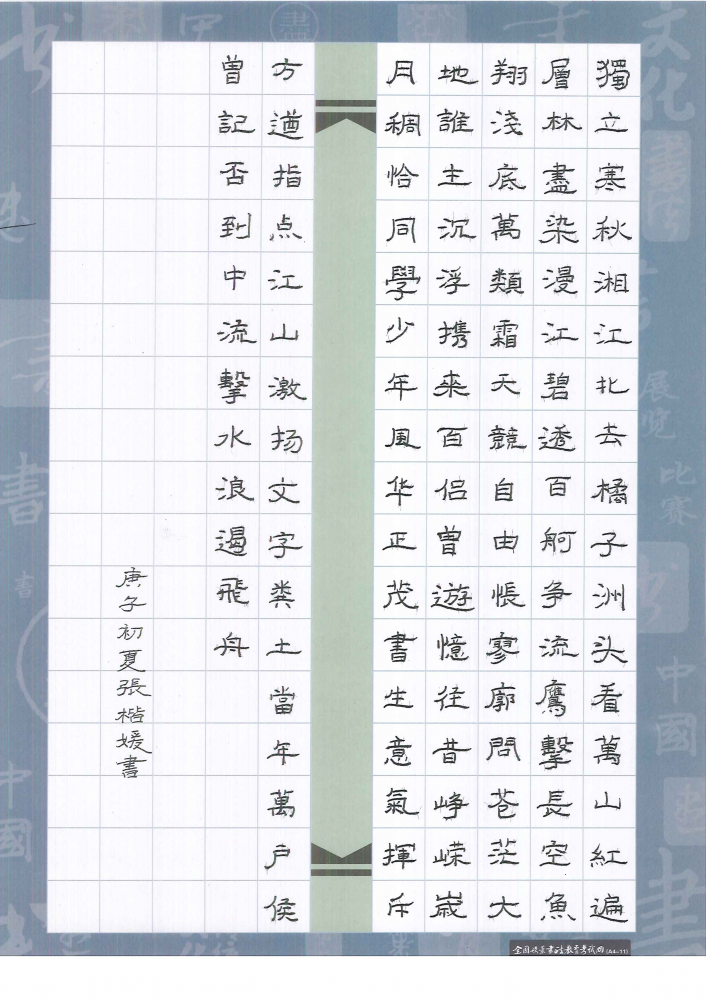 獨立寒秋湘江北去橘子洲头看萬山紅遍
層林盡染漫江碧透百舸争流鷹擊長空魚
翔淺底萬類霜天競自由悵寥廓問苍茫大
地誰主沉浮携來百侣曾遊憶往昔峥嵘崴
月稠恰同學少年風华正茂書生意氣揮斥
方遒指点江山激扬文字粪土當年萬户侯
曾記否到中流擊水浪遏飛舟
庚子初夏張楷媛書
(A4-11)